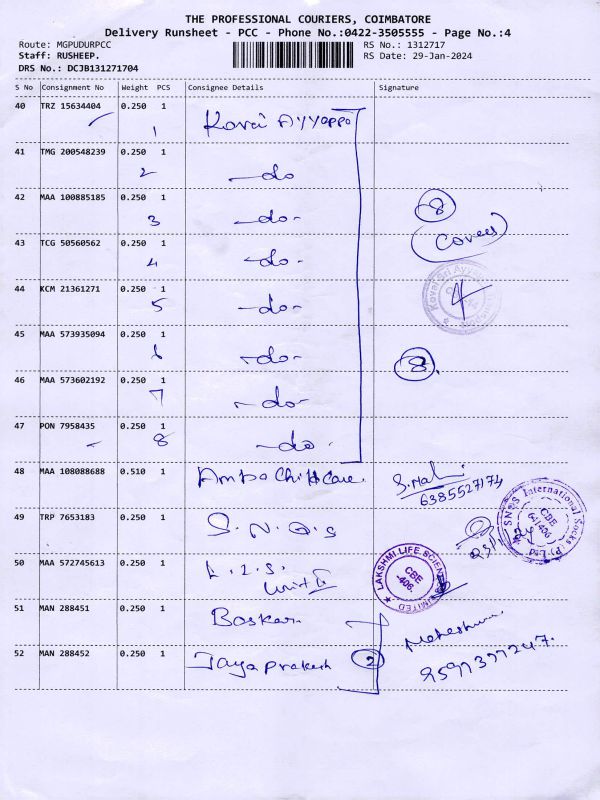 THE PROFESSIONAL COURIERS, COIMBATORE
Delivery Runsheet - PCC - Phone No.:0422-3505555 - Page No.:4
Route: MGPUDURPCC
RS No.: 1312717
Staff: RUSHEEP.
RS Date: 29-Jan-2024
DRS No.: DCJB131271704
S No Consignment No Weight PCS Consignee Details Signature
40 TRZ 15634404 0.250 1 Kovai Ayyappa
1
41 TMG 200548239 0.250 1 -do
2
42 MAA 100885185 0.250 1 -do-
3
8
(Covers)
43 TCG 50560562 0.250 1 -do-
4
44 KCM 21361271 0.250 1 -do-
5
45 MAA 573935094 0.250 1 -do-
6
8.
46 MAA 573602192 0.250 1 -do-
7
47 PON 7958435 0.250 1 -do-
8
48 MAA 108088688 0.510 1 Amba Child Care.
6385527174
49 TRP 7653183 0.250 1 S.N.Q.S
SNQS International Socks (P) Ltd
CBE
641406
50 MAA 572745613 0.250 1 L.L.S.
Unit II
LAKSHMI LIFE SCIENCES LIMITED
CBE
-406.
51 MAN 288451 0.250 1 Baskar
Maheshwari
52 MAN 288452 0.250 1 Jayaprakash 2
9597397247.